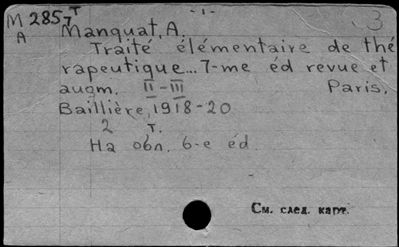 M 285/7 T - 1 - 3
A Manquat, A.
Traité élémentaire de thé
rapeutique... 7-me éd revue et
augm. II-III Paris,
Baillière, 1918-20
2 т.
На обл. 6-е éd.
См. след. карт.